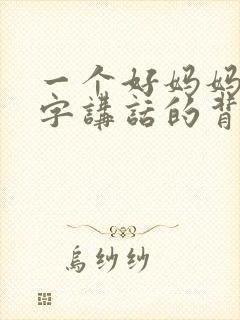 一个好妈妈
字講話的背
烏纱纱